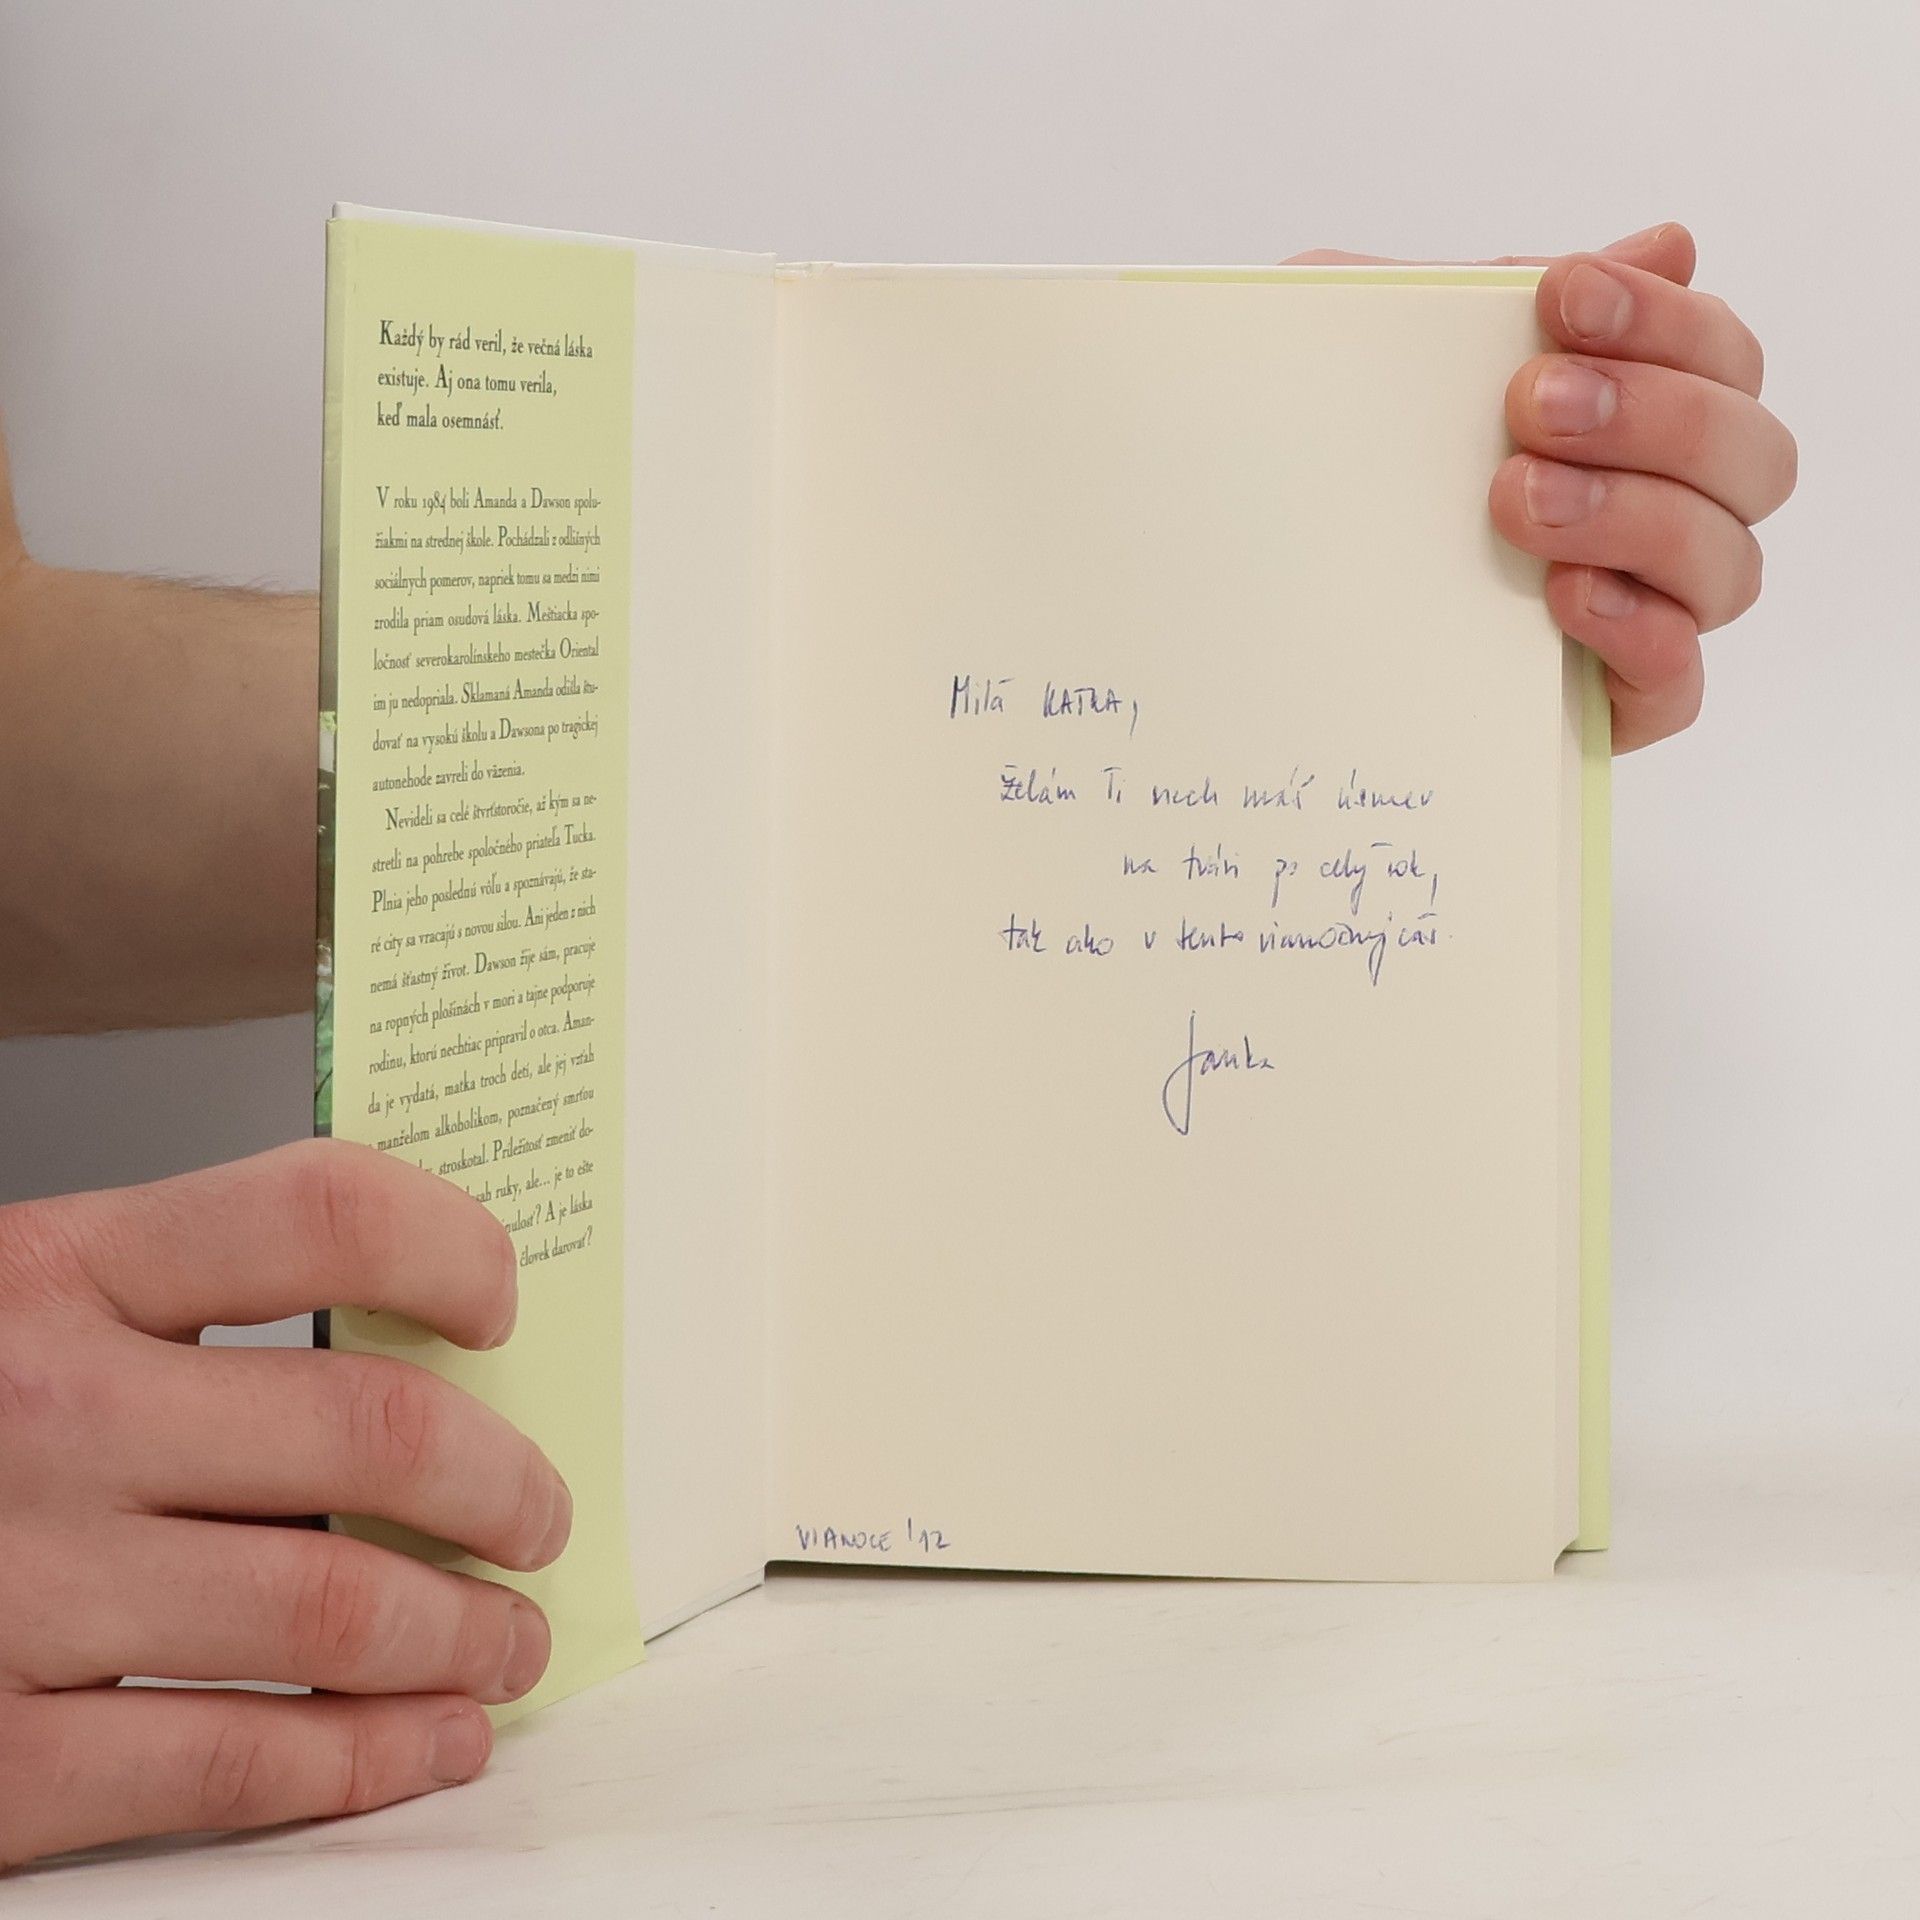 Každý by rád veril, že večná láska
existuje. Aj ona tomu verila,
keď mala osemnásť.
V roku 1984 boli Amanda a Dawson spolu-
žiakmi na strednej škole. Pochádzali z odlišných
sociálnych pomerov, napriek tomu sa medzi nimi
zrodila priam osudová láska. Meštiacka spo-
ločnosť severokarolínskeho mestečka Oriental
im ju nedopriala. Sklamaná Amanda odišla štu-
dovať na vysokú školu a Dawsona po tragickej
autonehode zavreli do väzenia.
Nevideli sa celé štvrťstoročie, až kým sa ne-
stretli na pohrebe spoločného priateľa Tucka.
Plnia jeho poslednú vôľu a spoznávajú, že sta-
ré city sa vracajú s novou silou. Ani jeden z nich
nemá šťastný život. Dawson žije sám, pracuje
na ropných plošinách v mori a tajne podporuje
rodinu, ktorú nechtiac pripravil o otca. Aman-
da je vydatá, matka troch detí, ale jej vzťah
manželom alkoholikom, poznačený smrťou
stroskotal. Príležitosť zmeniť do-
ruky, ale... je to ešte
A je láska
človek darovať?
Milá KATKA,
želám Ti nech máš úsmev
na tvári po celý rok,
tak ako v tento vianočný čas.
Janka
VIANOCE '12